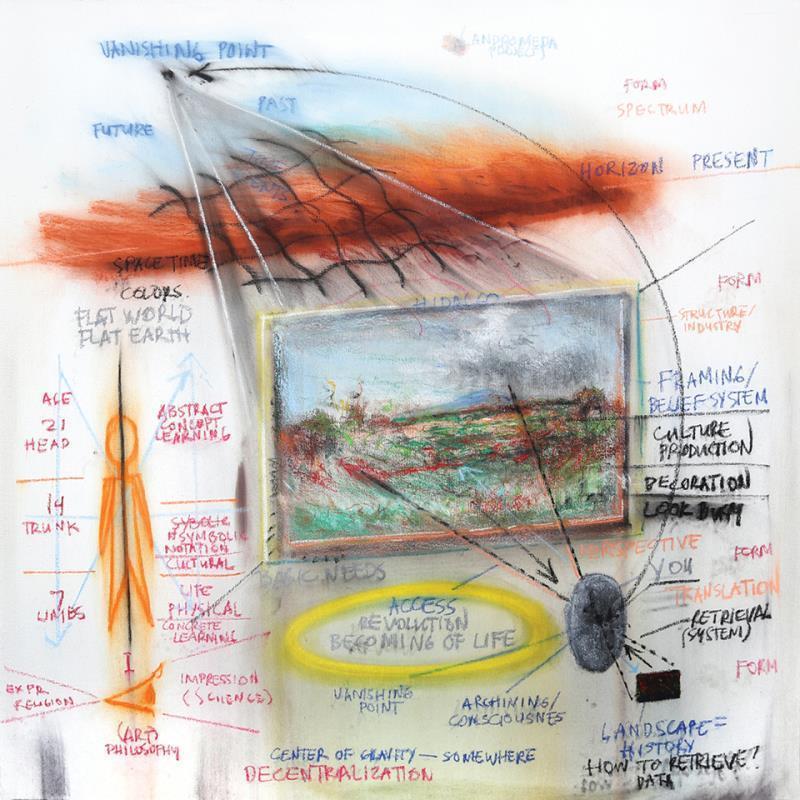 VANISHING POINT
ANDROMEDA
PROJECT
PAST
FUTURE
FORM
SPECTRUM
HORIZON PRESENT
SPACE TIME
COLORS
FLAT WORLD
FLAT EARTH
HIDALGO
FORM
STRUCTURE/
INDUSTRY
FRAMING/
BELIEF SYSTEM
CULTURE
PRODUCTION
DECORATION
LOOK
AGE
21
HEAD
ABSTRACT
CONCEPT
LEARNING
14
TRUNK
NOTATION
CULTURAL
7
LIMBS
LIFE
PHYSICAL
CONCRETE
LEARNING
BASIC NEEDS
PERSPECTIVE
YOU
FORM
TRANSLATION
RETRIEVAL
(SYSTEM)
FORM
ACCESS
REVOLUTION
BECOMING OF LIFE
I
EXPR.
RELIGION
IMPRESSION
(SCIENCE)
(ART)
PHILOSOPHY
VANISHING
POINT
ARCHIVING/
CONSCIOUSNES
CENTER OF GRAVITY — SOMEWHERE
DECENTRALIZATION
LANDSCAPE =
HISTORY
HOW TO RETRIEVE?
DATA